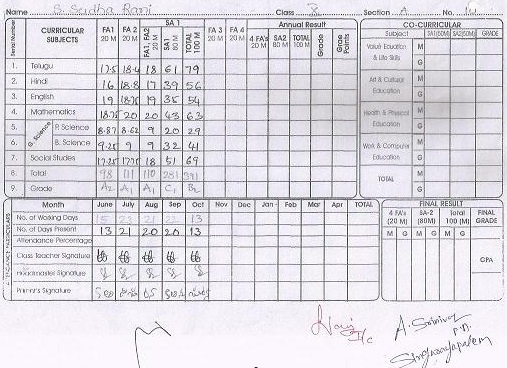 Name S. Sudha Rani Class X Section A No.
Serial Number CURRICULAR SUBJECTS SA 1 Annual Result CO-CURRICULAR
FA1 20 M FA 2 20 M FA1, FA2 20 M SA1 80 M TOTAL 100 M FA 3 20 M FA 4 20 M 4 FA's 20 M SA2 80 M TOTAL 100 M Grade Grae Points Subject SA1(50M) SA2(50M) GRADE
1. Telugu 17.5 18.4 18 61 79
2. Hindi 16 18.8 17 39 56
3. English 19 18.75 19 35 54
4. Mathematics 18.75 20 20 43 63
5. G. Science P. Science 8.87 8.62 9 20 29
6. B. Science 9.25 9 9 32 41
7. Social Studies 17.25 17.75 18 51 69
8. Total 98 111 110 281 391
9. Grade A2 A1 A1 C1 B2
Value Education & Life Skills M G
Art & Cultural Education M G
Health & Physical Education M G
Work & Computer Education M G
TOTAL M G
ATTENDANCE PARTICULARS Month June July Aug Sep Oct Nov Dec Jan Feb Mar Apr TOTAL
No. of Working Days 15 23 21 22 13
No. of Days Present 13 21 20 20 13
Attendance Percentage
Class Teacher Signature
Headmaster Signature
Parent's Signature
FINAL RESULT
4 FA's (20 M) SA-2 (80M) Total 100 (M) FINAL GRADE
M G M G M G
GPA
A. Srinivas